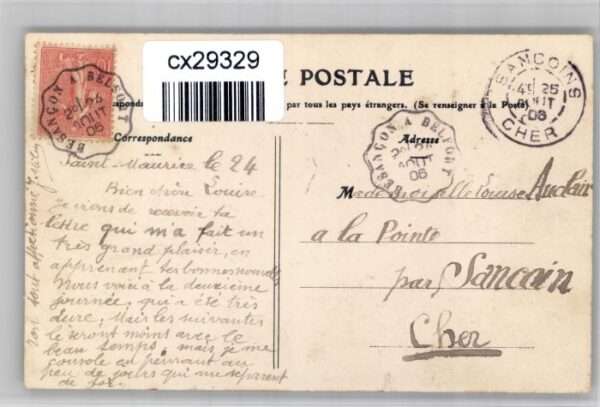 cx29329
E POSTALE
par tous les pays étrangers. (Se renseigner à la Poste)
Correspondance
Adresse
BESANÇON A BELFORT
24
AOUT
06
BESANÇON A BELFORT
AOUT
06
SANCOINS
4E 25
AOUT
06
CHER
Saint-Maurice le 24
Bien chère Louise
Je viens de recevoir ta
lettre qui m'a fait un
très grand plaisir, en
apprenant tes bonnes nouvelles
Nous voici à la deuxième
journée, qui a été très
dure, Mais les suivantes
le seront moins avec le
beau temps, mais je me
console en pensant au
peu de jours qui me séparent
de toi.
ton tout affectionné
Mademoiselle Louise Auclair
a la Pointe
par Sancoin
Cher